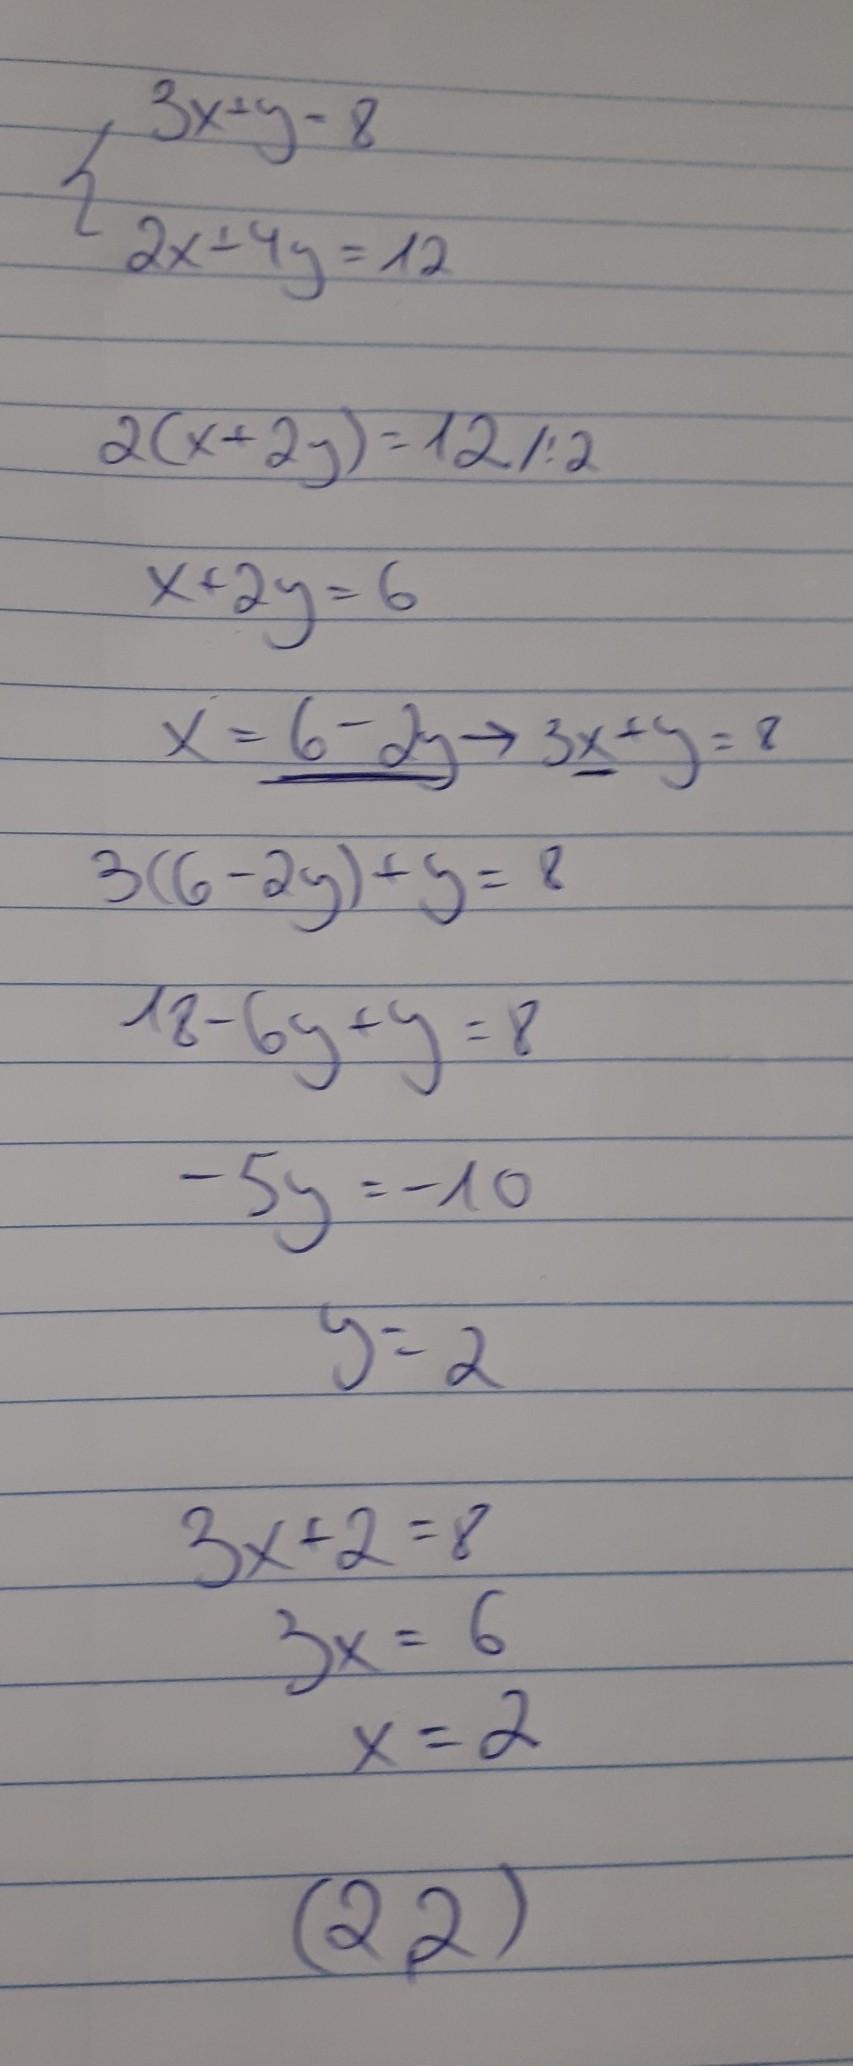 3x+y=8
2x+4y=12
2(x+2y)=12/:2
x+2y=6
x=6-2y→3x+y=8
3(6-2y)+y=8
18-6y+y=8
-5y=-10
y=2
3x+2=8
3x=6
x=2
(2,2)